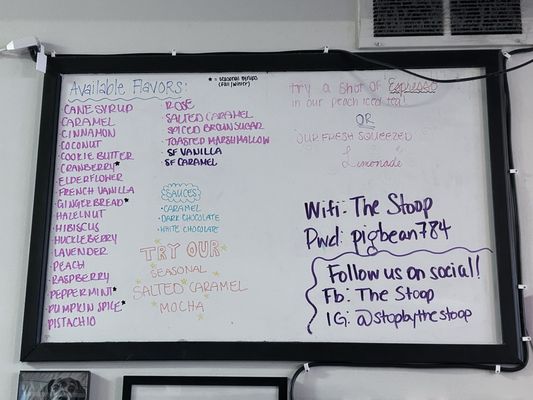 Available Flavors:
* = SEASONAL SYRUPS
(FALL/WINTER)
CANE SYRUP
· CARAMEL
· CINNAMON
· COCONUT
· COOKIE BUTTER
· CRANBERRY*
· ELDERFLOWER
· FRENCH VANILLA
· GINGERBREAD*
· HAZELNUT
· HIBISCUS
· HUCKLEBERRY
· LAVENDER
· PEACH
· RASPBERRY
· PEPPERMINT*
· PUMPKIN SPICE*
· PISTACHIO
· ROSE
· SALTED CARAMEL
· SPICED BROWN SUGAR
· TOASTED MARSHMALLOW
· SF VANILLA
· SF CARAMEL
SAUCES
· CARAMEL
· DARK CHOCOLATE
· WHITE CHOCOLATE
TRY OUR
SEASONAL
SALTED CARAMEL
MOCHA
Try a shot of Espresso
in our peach iced tea!
OR
OUR FRESH SQUEEZED
Limonade
Wifi: The Stoop
Pwd: pigbean784
Follow us on social!
Fb: The Stoop
IG: @stopbythestoop